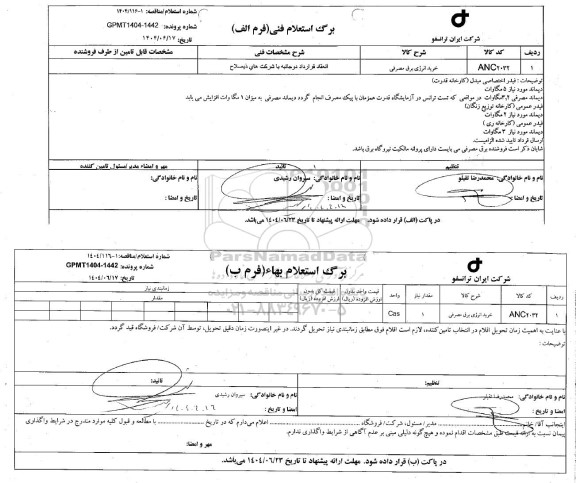 شماره استعلام/مناقصه: ۱-۱۱۶/۱۴۰۴
شماره پرونده: GPMT1404-1442
تاریخ: ۱۴۰۴/۰۶/۱۷
برگ استعلام فنی(فرم الف)
شرکت ایران ترانسفو
ردیف کد کالا شرح کالا شرح مشخصات فنی مشخصات قابل تامین از طرف فروشنده
۱ ANC۲۰۳۲ خرید انرژی برق مصرفی انعقاد قرارداد دوجانبه با شرکت های ذیصلاح
توضیحات: فیدر اختصاصی مبدل (کارخانه قدرت)
دیماند مورد نیاز ۵مگاوات
دیماند مصرفی ۳٫۲مگاوات در مواقعی که تست ترانس در آزمایشگاه قدرت همزمان با پیک مصرف انجام گردد دیماند مصرفی به میزان ۱ مگا وات افزایش می یابد
فیدر عمومی (کارخانه توزیع زنگان)
دیماند مورد نیاز ۲ مگاوات
فیدر عمومی (کارخانه ری)
دیماند مورد نیاز ۳ مگاوات
ارسال قرداد تایید شده الزامیست.
شایان ذکر است فروشنده برق مصرفی می بایست دارای پروانه مالکیت نیروگاه برق باشد.
تنظیم تائید مهر و امضاء مدیر/مسئول تامین کننده
نام و نام خانوادگی: محمدرضا تقیلو نام و نام خانوادگی: سیروان رشیدی نام و نام خانوادگی:
تاریخ و امضا: تاریخ و امضا: ۱۴۰۴.۶.۱۶ تاریخ و امضا:
در پاکت (الف) قرار داده شود. مهلت ارائه پیشنهاد تا تاریخ ۱۴۰۴/۰۶/۲۳ می‌باشد.
ParsNamadData
۰۲۱-۸۸۳۴۹۶۷۰-۵
شماره استعلام/مناقصه: ۱-۱۱۶/۱۴۰۴
شماره پرونده: GPMT1404-1442
تاریخ: ۱۴۰۴/۰۶/۱۷
برگ استعلام بهاء(فرم ب)
شرکت ایران ترانسفو
ردیف کد کالا شرح کالا مقدار نیاز واحد قیمت واحد بدون ارزش افزوده (ریال) قیمت کل بدون ارزش افزوده (ریال) زمانبندی نیاز
مقدار
۱ ANC۲۰۳۲ خرید انرژی برق مصرفی ۱ Cas
با عنایت به اهمیت زمان تحویل اقلام در انتخاب تامین‌کننده، لازم است اقلام فوق مطابق زمانبندی نیاز تحویل گردند. در غیر اینصورت زمان دقیق تحویل، توسط آن شرکت/فروشگاه قید گردد.
توضیحات:
تنظیم: تائید:
نام و نام خانوادگی: محمدرضا تقیلو نام و نام خانوادگی: سیروان رشیدی
امضا و تاریخ: امضا و تاریخ: ۱۴۰۴.۶.۱۶
اینجانب آقا/خانم مدیر/مسئول، شرکت/فروشگاه اعلام می‌دارم که در تاریخ با مطالعه و قبول کلیه موارد مندرج در شرایط واگذاری
پیمان نسبت به ارائه قیمت طبق مشخصات اقدام نموده و هیچ‌گونه دلیلی مبنی بر عدم آگاهی از شرایط واگذاری ندارم.
مهر و امضا:
در پاکت (ب) قرار داده شود. مهلت ارائه پیشنهاد تا تاریخ ۱۴۰۴/۰۶/۲۳ می‌باشد.